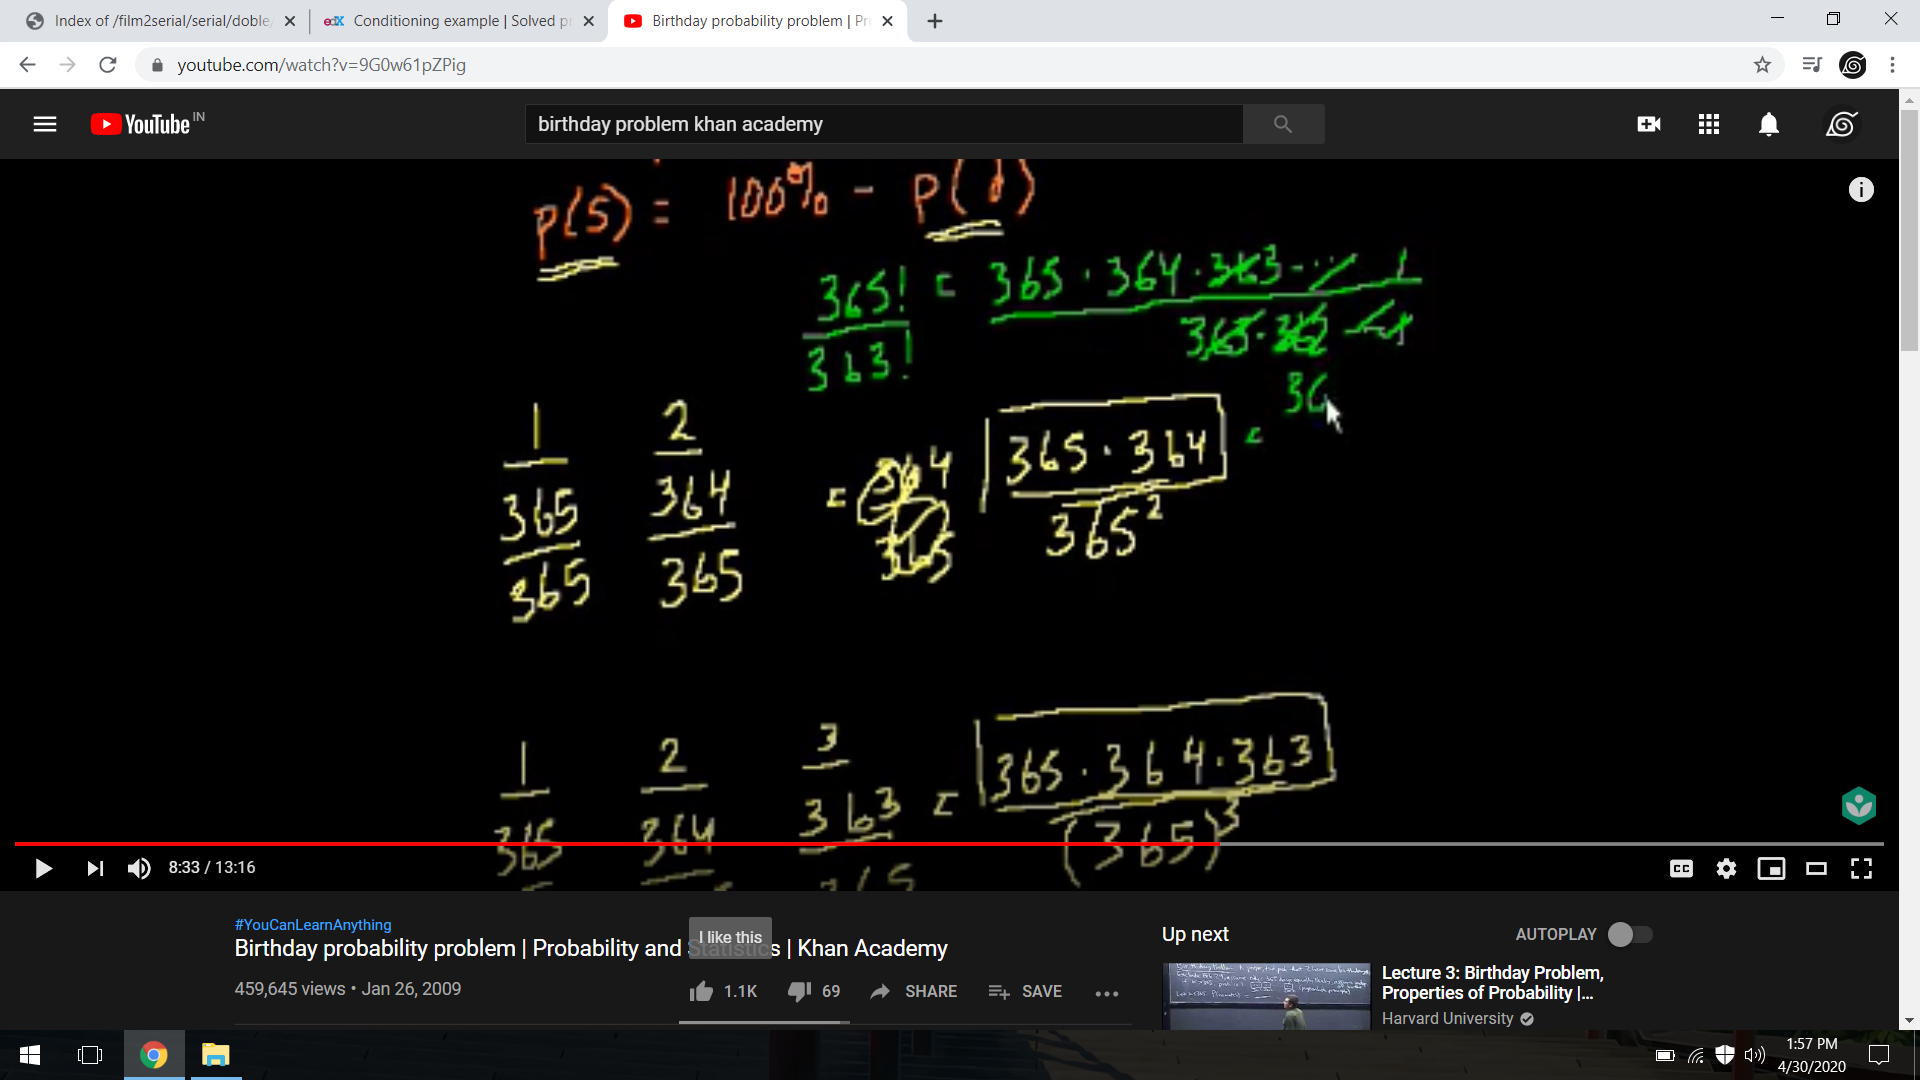 Index of /film2serial/serial/doble
Conditioning example | Solved p
Birthday probability problem | Pr
youtube.com/watch?v=9G0w61pZPig
YouTube IN
birthday problem khan academy
P(S) = 100% - P(d)
365! = 365 · 364 · 363 ... 1
363! 363 · 362 ... 1
36
1 2
365 364 = 364 365 · 364 =
365 365 365 365²
1 2 3
365 364 363 = 365 · 364 · 363
365 (365)³
8:33 / 13:16
CC
#YouCanLearnAnything
I like this
Birthday probability problem | Probability and Statistics | Khan Academy
459,645 views • Jan 26, 2009
1.1K 69 SHARE SAVE
Up next
AUTOPLAY
Lecture 3: Birthday Problem,
Properties of Probability |...
Harvard University
1:57 PM
4/30/2020